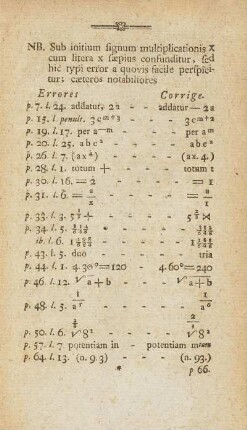 NB. Sub initium signum multiplicationis x
cum litera x sæpius confunditur, sed
hic typi error a quovis facile perspici-
tur; cæteros notabiliores
Errores Corrige.
p. 7. l. 24. addatur, 2a - addatur — 2a
p. 15. l. penult. 3c^m+2 - - 3c^m+2
p. 19. l. 17. per a^—m - - per a^m
p. 20. l. 25. abc² - - abc²
p. 26. l. 7. (ax⁴) - - (ax.4)
p. 28. l. 1. totum + - - totum t
p. 30. l. 16. = 2 - - = 1
p. 31. l. 6. = a/x - - = a/1
p. 33. l. 3.
p. 34. l. 5.
ib. l. 6.
p. 43. l. 5. duo - - tria
p. 44. l. 1. 4.30°=120 4.60°=240
p. 46. l. 12. √a+b - - √a+b
p. 48. l. 5.
p. 50. l. 6. √8²
p. 57. l. 7. potentiam in - potentiam
p. 64. l. 13. (n. 93) - - (n. 93.)
p 66.